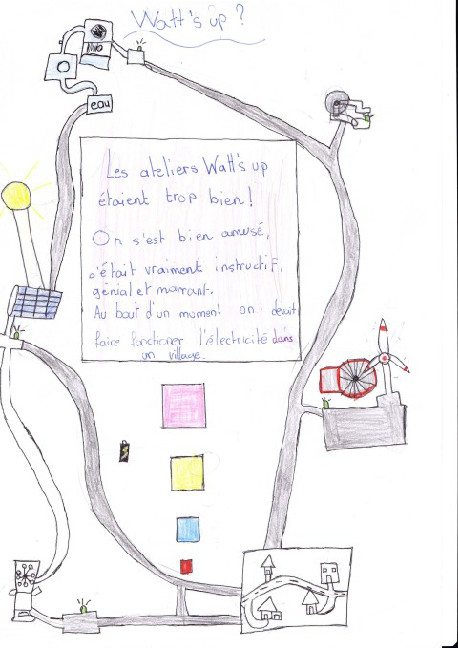 Watt's up ?
eau
Les ateliers Watt's up
étaient trop bien !
On s'est bien amusé,
c'était vraiment instructif,
génial et marrant.
Au bout d'un moment on devait
faire fonctioner l'électricité dans
un village.